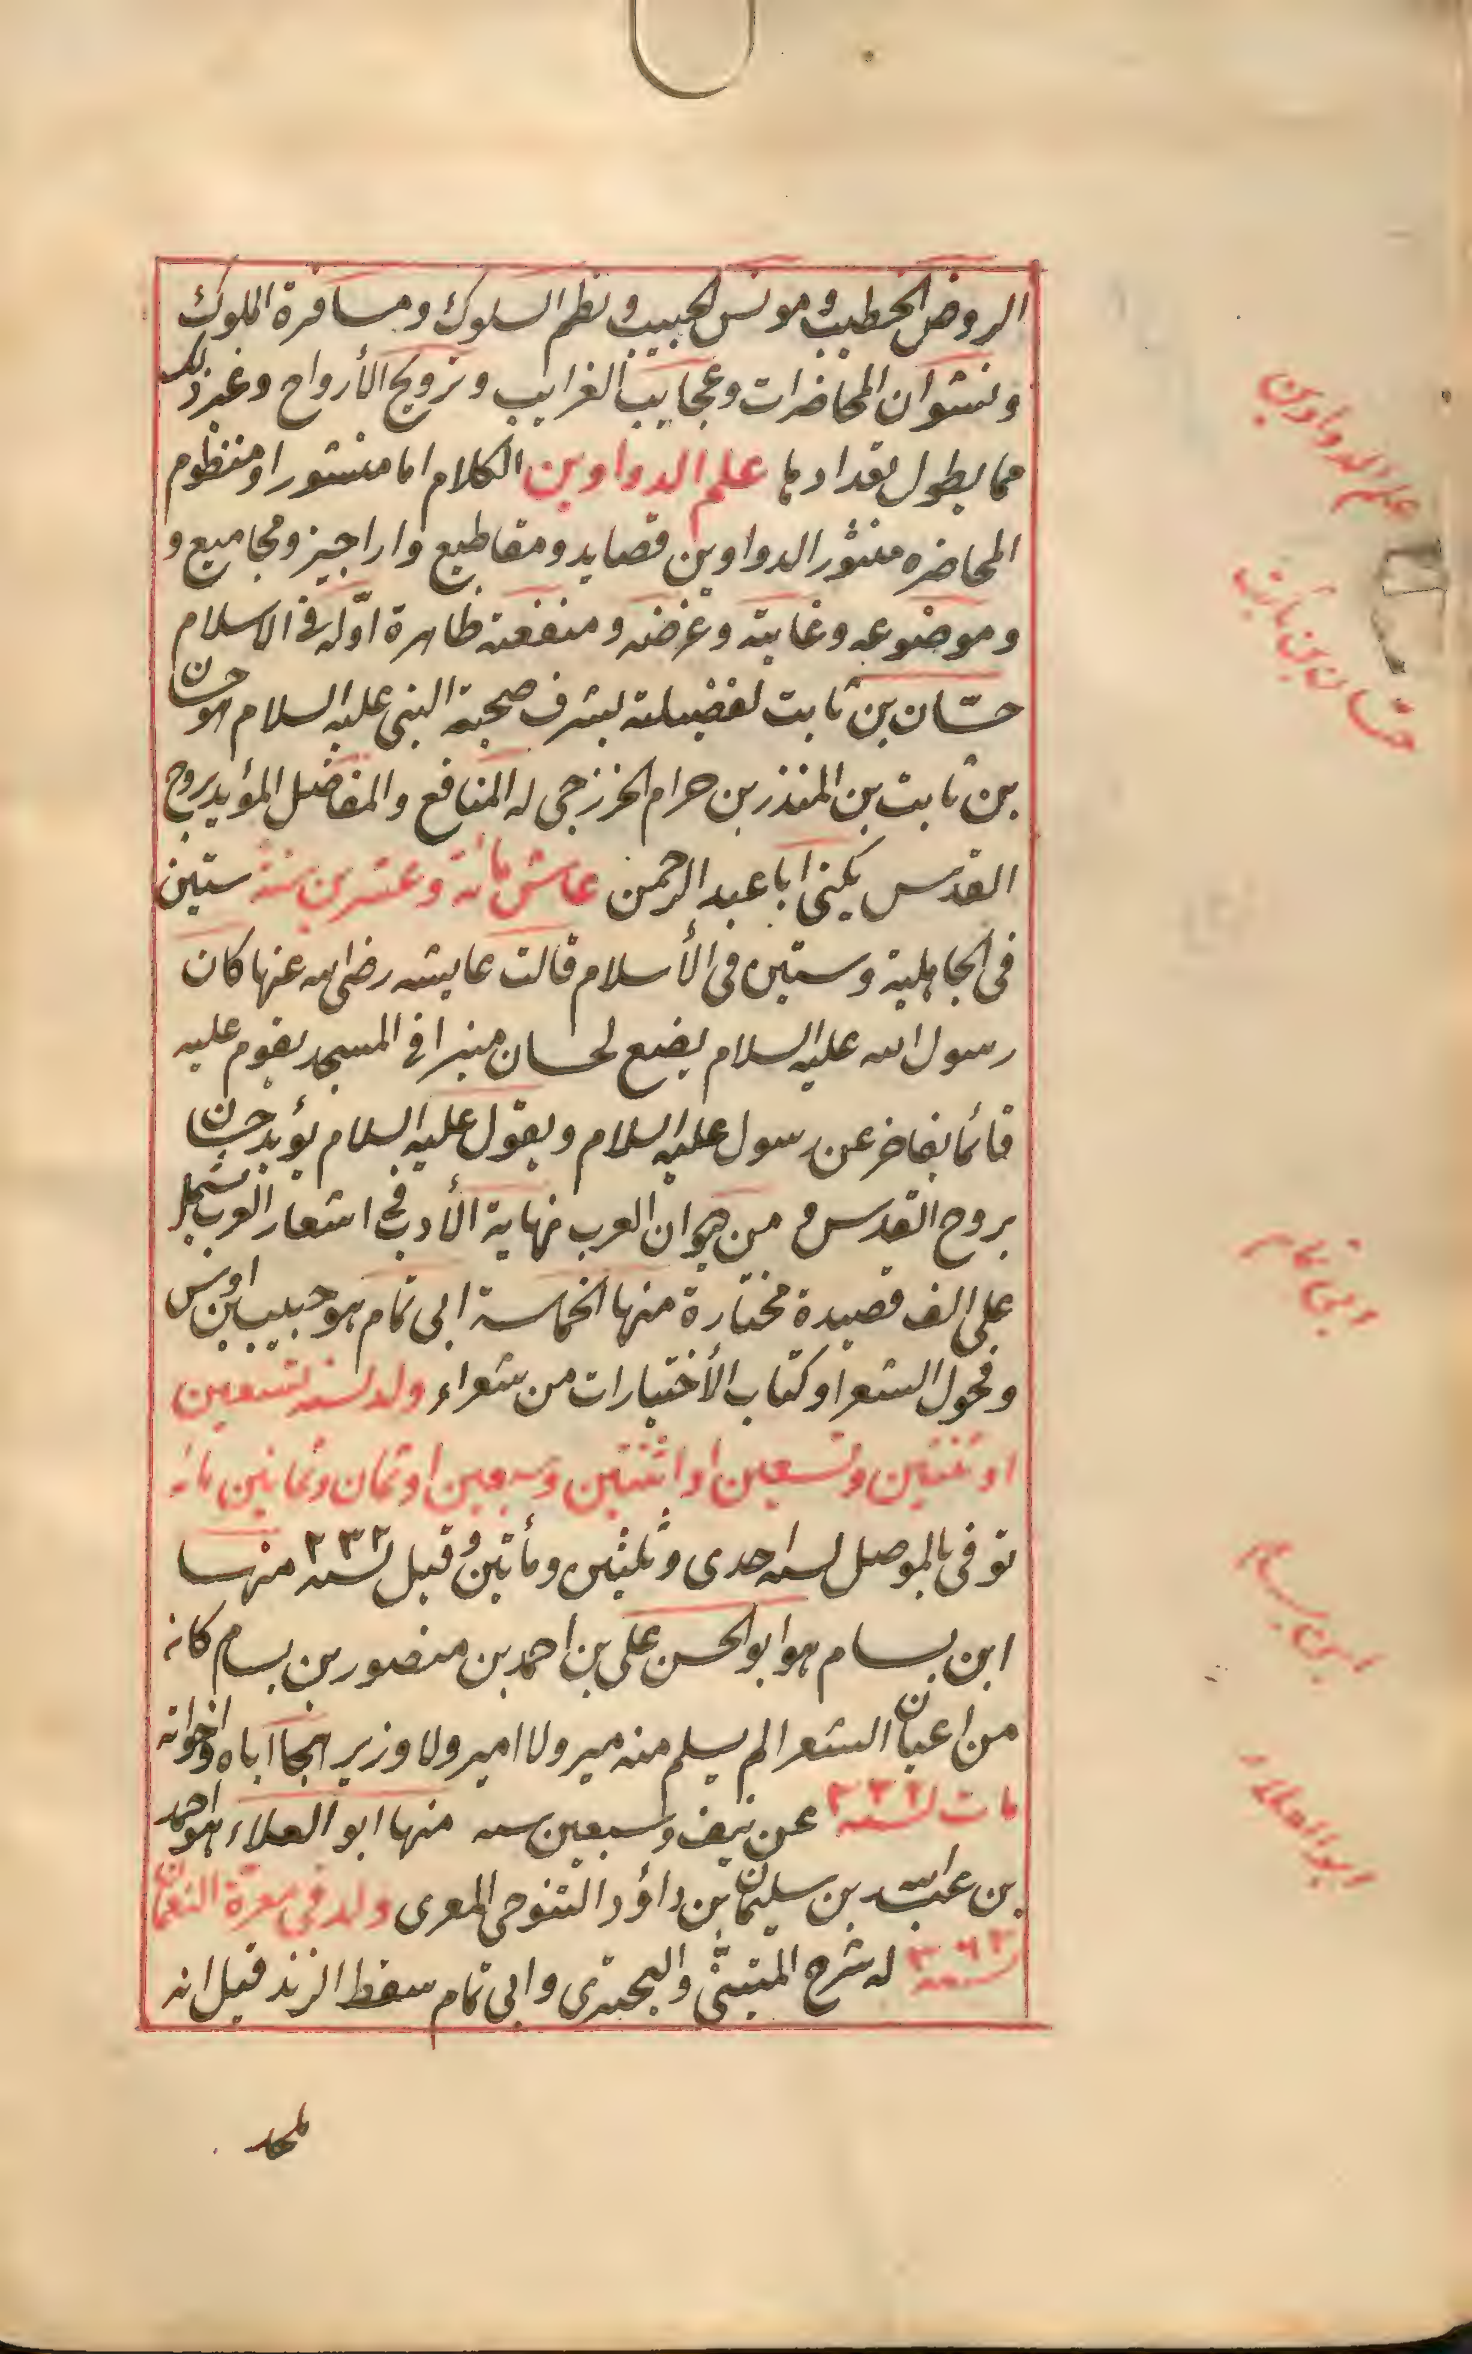 الروض الخطيب ومونس الحبيب ونظم السلوك ومسافرة الملوك
ونشوان المحاضرات وعجايب الغرايب وترويح الأرواح وغير ذلك
مما يطول تعدادها علم الدواوين الكلام اما منثور او منظوم
المحاضره منثور الدواوين قصايد ومقاطيع واراجيز ومجاميع و
وموضوعه وغايته وغرضه ومنفعته ظاهرة اوّله فى الاسلام
حسّان بن ثابت لفضيلته بشرف صحبة النبى عليه السلام هو حسان
بن ثابت بن المنذر بن حرام الخزرجى له المنافع والمفاضل المؤيد بروح
القدس يكنى ابا عبد الرحمن عاش مائة وعشرين سنة ستين
فى الجاهلية وستين فى الأسلام قالت عايشه رضى الله عنها كان
رسول الله عليه السلام يضع لحسان منبرا فى المسجد يقوم عليه
قائما يفاخر عن رسول عليه السلام ويقول عليه السلام يؤيد حسان
بروح القدس و من ديوان العرب نهاية الأدب فى اشعار العرب يشتمل
على الف قصيدة مختارة منها الحماسة ابى تمام هو حبيب ابن اوس
وفحول الشعرا وكتاب الأختيارات من شعراء ولد لسنه تسعين
او ثنتين وتسعين او اثنتين وسبعين او ثمان وثمانين مائة
توفى بالموصل لسنه احدى وثلثين ومأتين وقيل لسنه ٢٣٢ منها
ابن بسام هو ابو الحسن على بن احمد بن منصور بن بسام كانه
من اعيان الشعرا لم يسلم منه مير ولا امير ولا وزير هجا اباه واخوانه
مات لسنه عن نيف وسبعين سنه منها ابو العلاء هو احمد
بن عبد الله بن سليمان بن داؤد التنوحى المعرى ولد فى معرّة النعمان
لسنه ٣٦٣ له شرح المتنبى والبحترى وابى تمام سقط الزند قيل انه
ملحد
علم الدواوين
حسّان بن ثابت
ابى تمام
ابن بسام
ابو العلاء